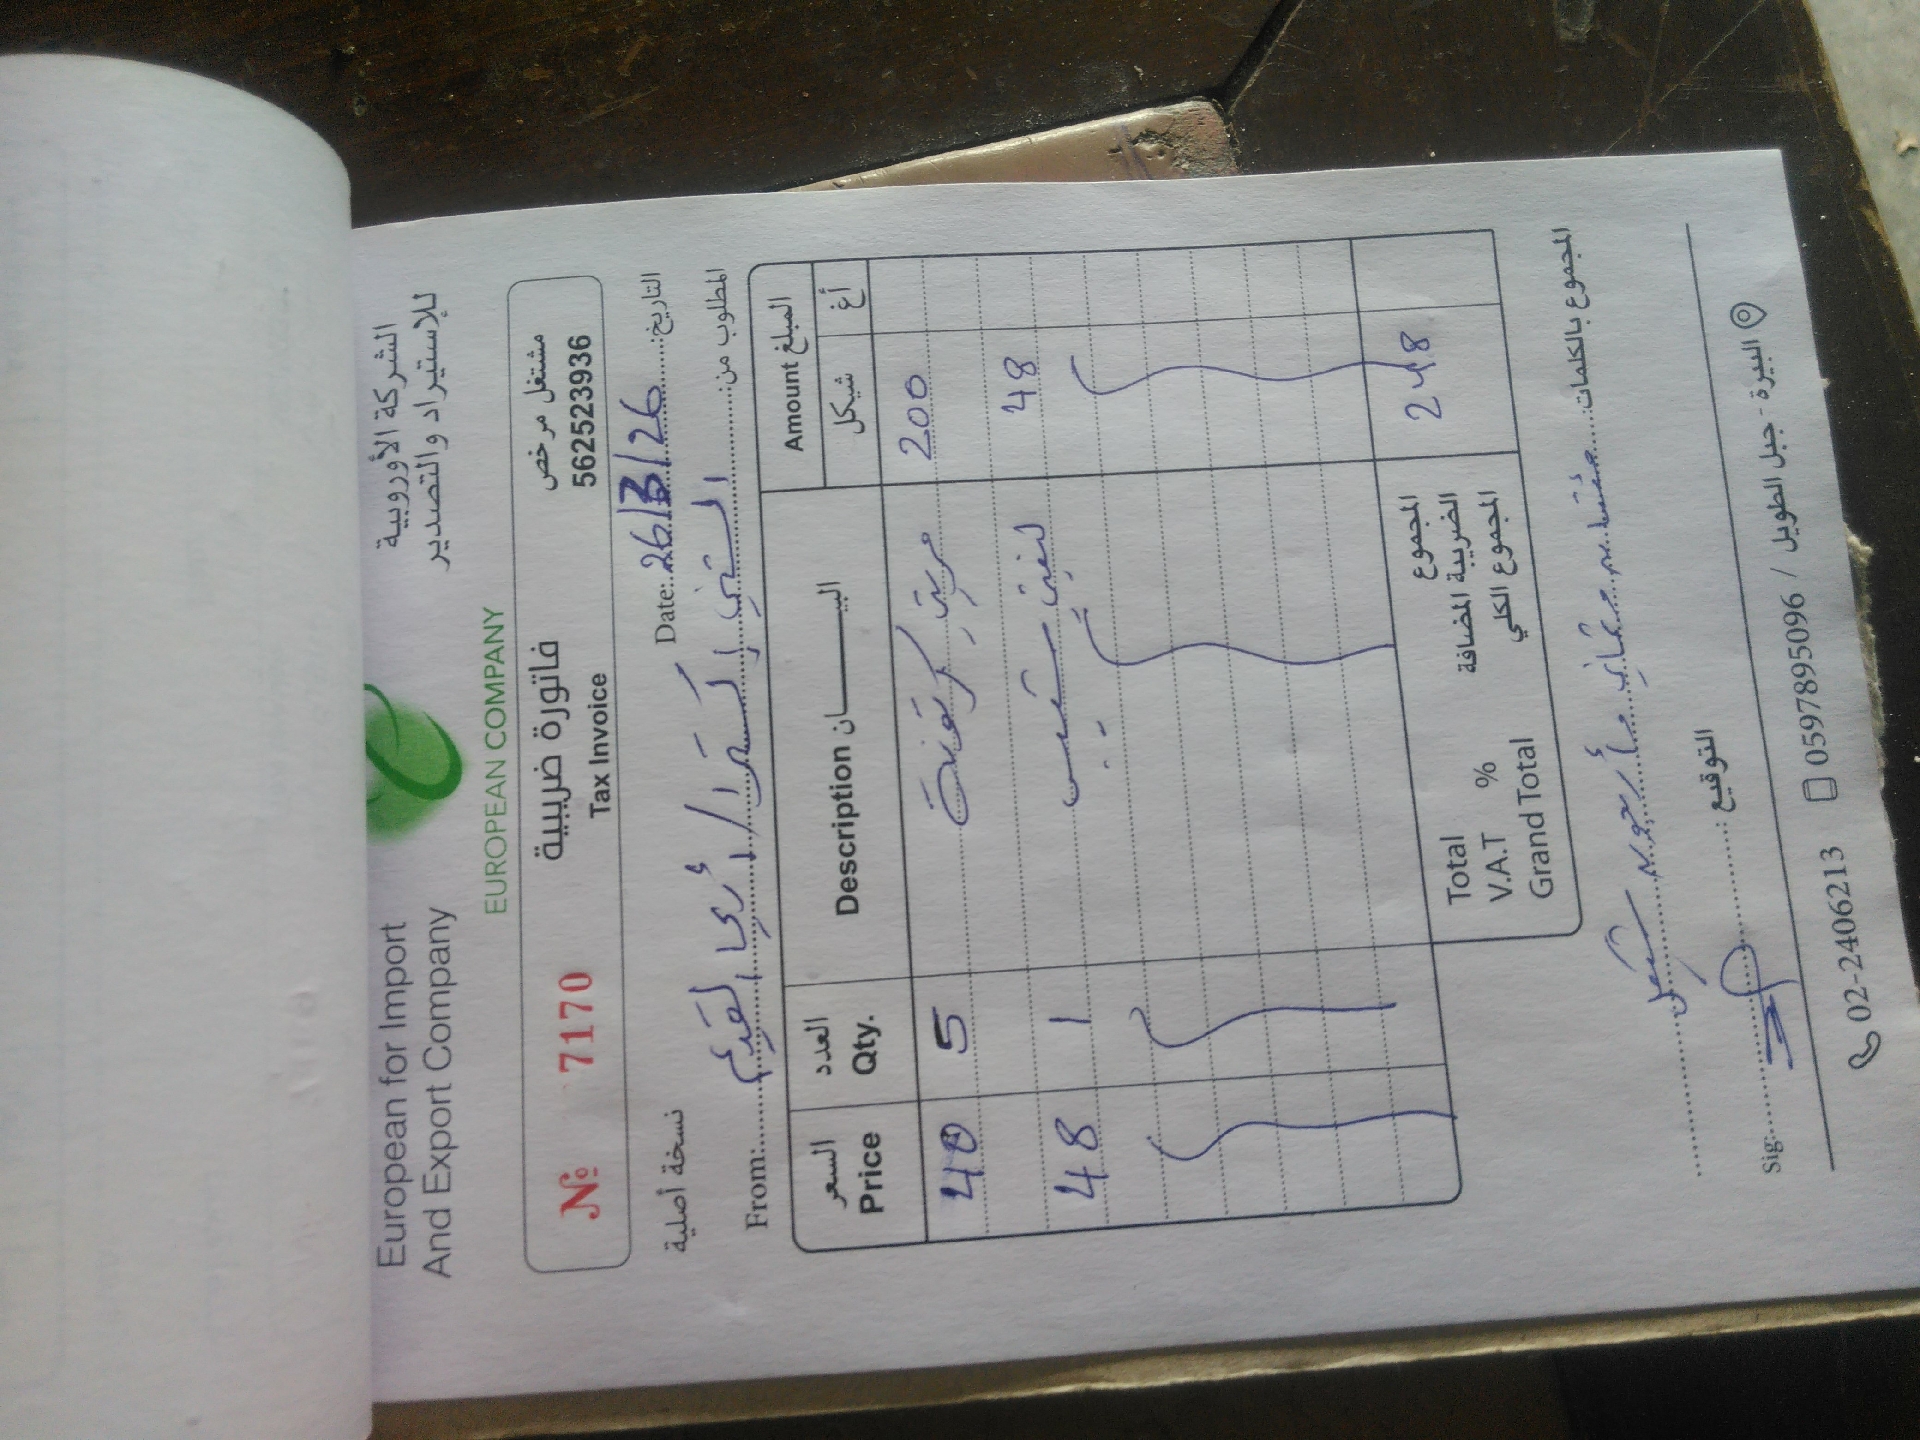 European for Import
And Export Company
الشركة الأوروبية
للإستيراد والتصدير
EUROPEAN COMPANY
№ 7170
فاتورة ضريبية
Tax Invoice
مشتغل مرخص
562523936
نسخة أصلية
Date: 26/3/26 التاريخ:
From: المطلوب من:
السعر Price العدد Qty. Description البيـــــــان Amount المبلغ
شيكل أغ
40 5 200
48 1 48
248
Total المجموع
V.A.T % الضريبة المضافة
Grand Total المجموع الكلي
المجموع بالكلمات: مئتان وثمانية وأربعون شيكل
Sig: التوقيع:
02-2406213 0597895096 / البيرة - جبل الطويل